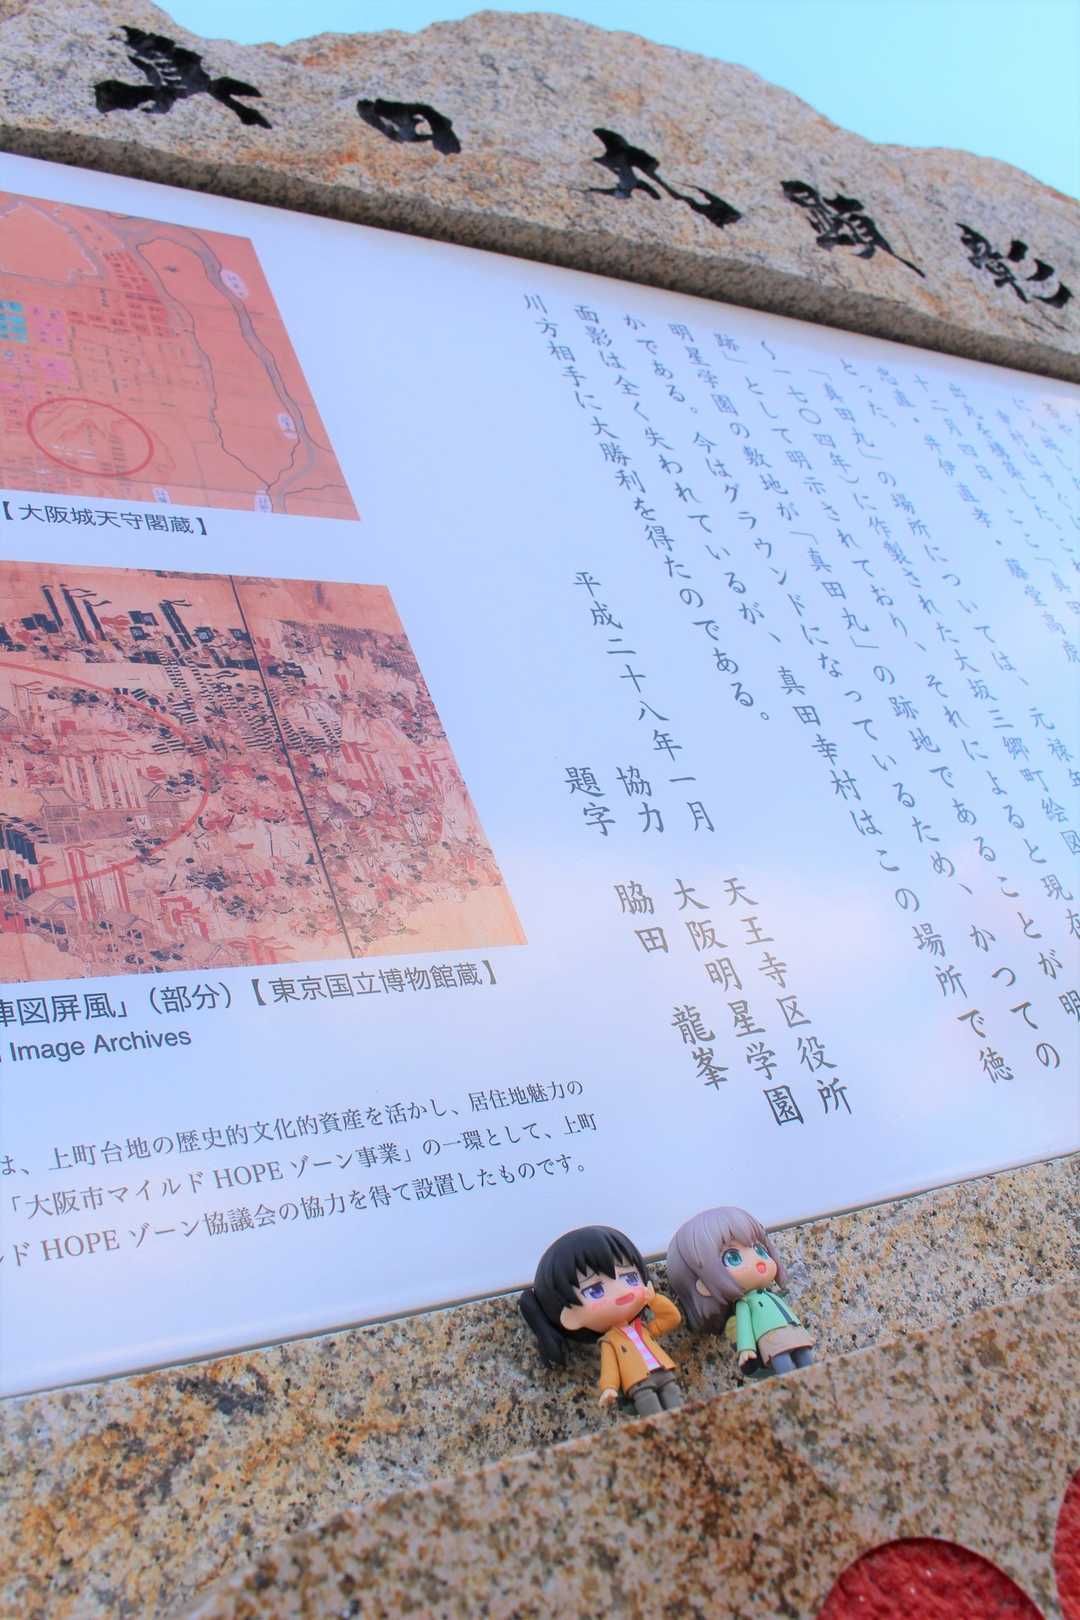 真田丸顕彰
出丸を構築した。これ「真田
十二月四日、ここ
忠直・井伊直孝・藤堂高虎
とった。
「真田丸」の場所については、元禄年
〜一七〇四年)に作製された大坂三郷町絵図
跡」として明示されており、それによると現在
明星学園の敷地が「真田丸」の跡地であることが明
かである。今はグラウンドになっているため、かつての
面影は全く失われているが、真田幸村はこの場所で徳
川方相手に大勝利を得たのである。
平成二十八年一月
天王寺区役所
協力 大阪明星学園
題字 脇田 龍峯
【大阪城天守閣蔵】
陣図屏風」(部分)【東京国立博物館蔵】
Image Archives
は、上町台地の歴史的文化的資産を活かし、居住地魅力の
「大阪市マイルドHOPEゾーン事業」の一環として、上町
ルドHOPEゾーン協議会の協力を得て設置したものです。